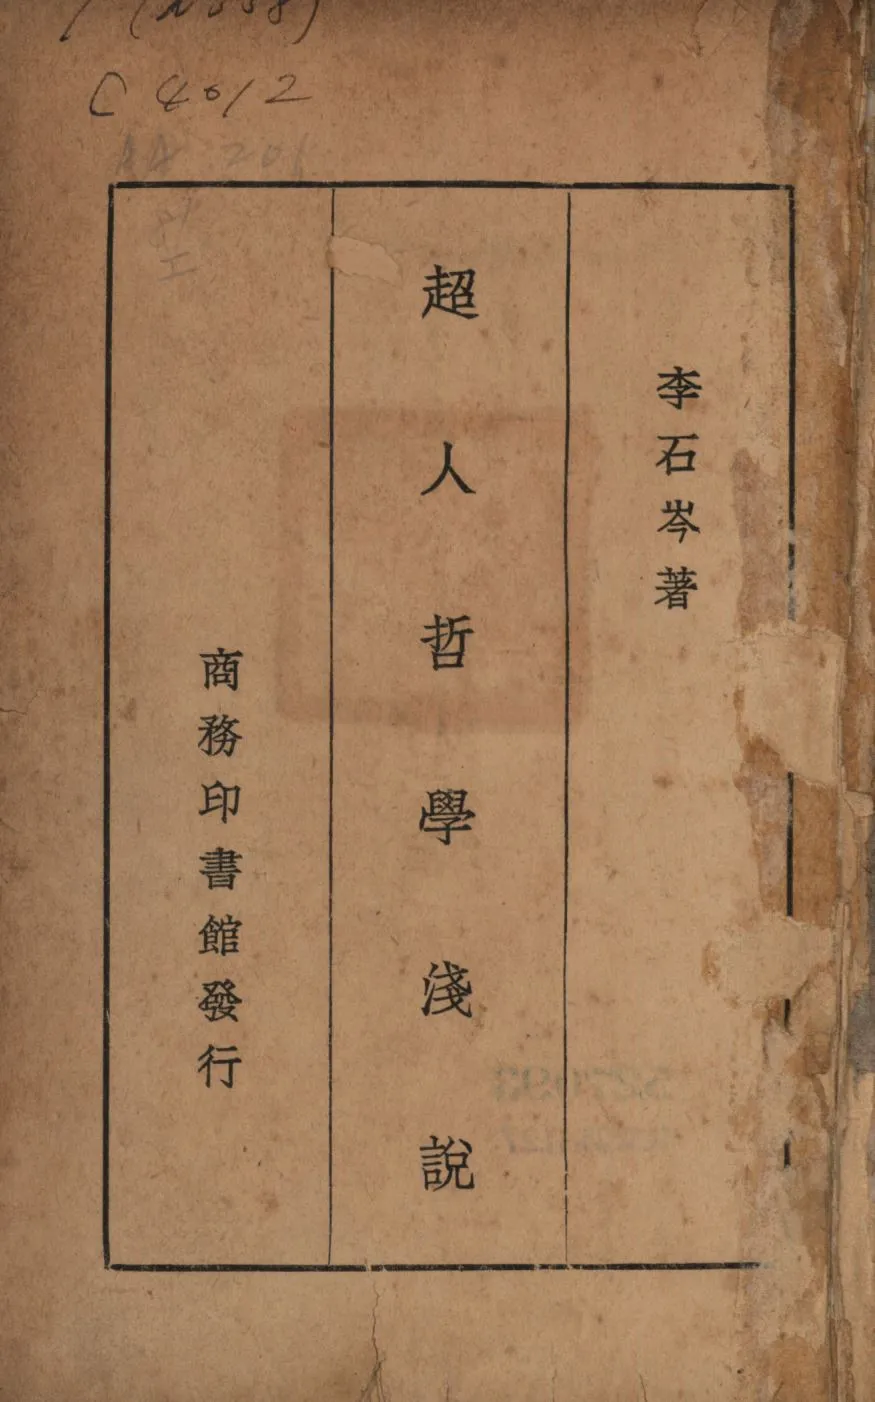 C 4012
李石岑著
超人哲學淺說
商務印書館發行